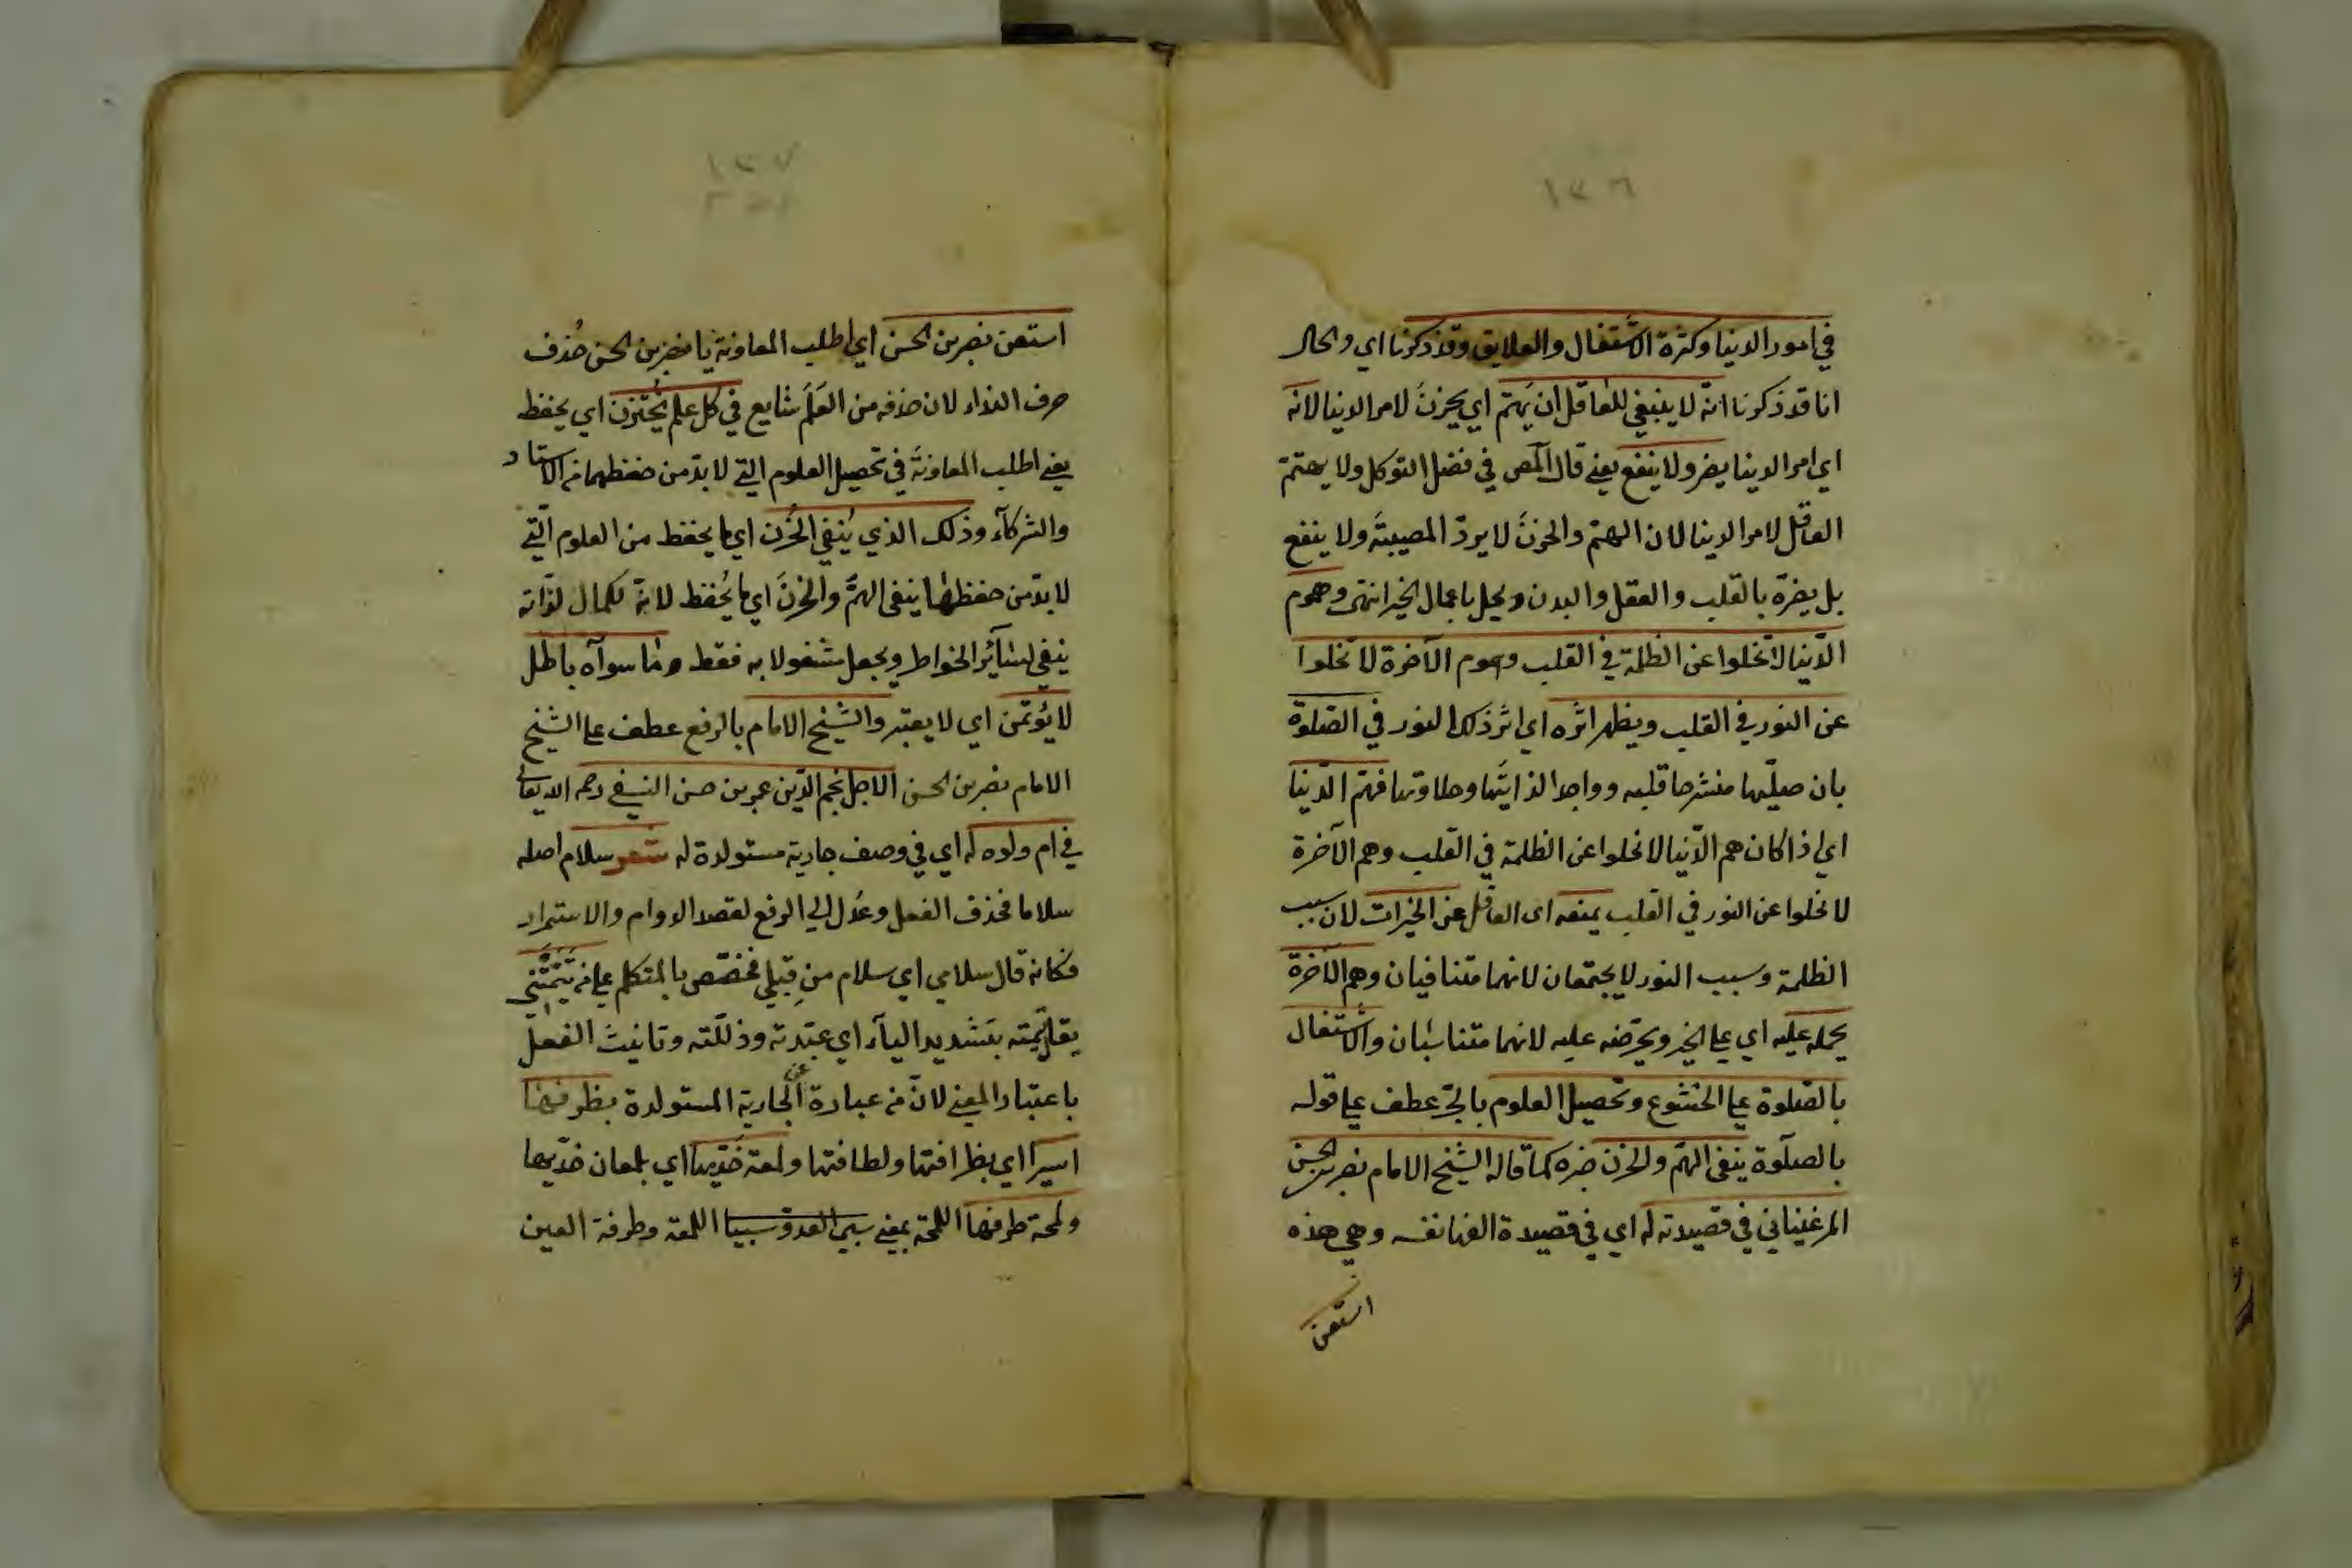 ١٣٦
في امور الدنيا وكثرة الاشتغال والعلايق وقد ذكرنا اي والحال
انا قد ذكرنا انه لا ينبغي للعاقل ان يهتم اي يحزن لامر الدنيا لانه
اي امر الدنيا يضر ولا ينفع يعني قال المص في فضل التوكل ولا يهتم
العاقل لامر الدنيا لان الهم والحزن لا يردّ المصيبة ولا ينفع
بل يضرّه بالقلب والعقل والبدن ويخل باعمال الخير انتهى وهموم
الدنيا لا تخلوا عن الظلمة في القلب وهموم الآخرة لا تخلوا
عن النور في القلب ويظهر اثره اي اثر ذلك النور في الصلوة
بان صلّيها منشرحا قلبه وواجدا لذايتها وحلاوتها فهمّ الدّنيا
اي اذا كان هم الدّنيا لا تخلوا عن الظلمة في القلب وهم الآخرة
لا تخلوا عن النور في القلب يمنعه اى العاقل عن الخيرات لان سبب
الظلمة وسبب النور لا يجتمعان لانهما متنافيان وهم الآخرة
يحمله عليه اي على الخير ويحرّضه عليه لانهما متناسبان والاشتغال
بالصّلوة على الخشوع وتحصيل العلوم بالجرّ عطف على قوله
بالصلوة ينفى الهمّ والحزن خبره كما قاله الشيخ الامام نصر بن الحسن
المرغيناني في قصيدته له اي في قصيدة الفها نفسه وهي هذه
استعن
١٣٧
استعن نصر بن الحسن اي اطلب المعاونة يا نصر بن الحسن حُذف
حرف النداء لان حذفه من العَلَم شايع في كل علم يُحتزن اي يحفظ
يعني اطلب المعاونة في تحصيل العلوم التي لا بدّ من حفظهما من الاستاد
والشركآء وذلك الذي يُنفي الحُزن اي ما يحفظ من العلوم الّتي
لا بدّ من حفظها ينفى الهمّ والحزنَ اي ما يُحفظ لانه لكمال لذّاته
ينفي لسآئر الخواطر ويجعل مشغولا به فقط وما سوآه باطل
لا يُؤتمن اي لا يعتبر والشيخ الامام بالرفع عطف على الشيخ
الامام نصر بن الحسن الاجل نجم الدّين عمر بن حسن النسفي رحمه الله تعالى
في ام ولده له اي في وصف جارية مستولدة له شعر سلام اصله
سلاما فحذف الفعل وعُدل الي الرفع لقصد الدوام والاستمرار
فكانه قال سلامي اي سلام من قِبَلي فخصّص بالمتكلم على من تَيَّمَتْني
يقال تيّمته بتشديد اليآء اي عبّدته وذلّلته وتانيث الفعل
باعتبار المعني لانّ من عبارة عن الجارية المستولدة بظرفها
اسيرا اي بظرافتها ولطافتها ولمعة خدّيها اي بلمعان خدّيها
ولمحة طرفها اللمحة بمعني اللمعة وطرفة العين